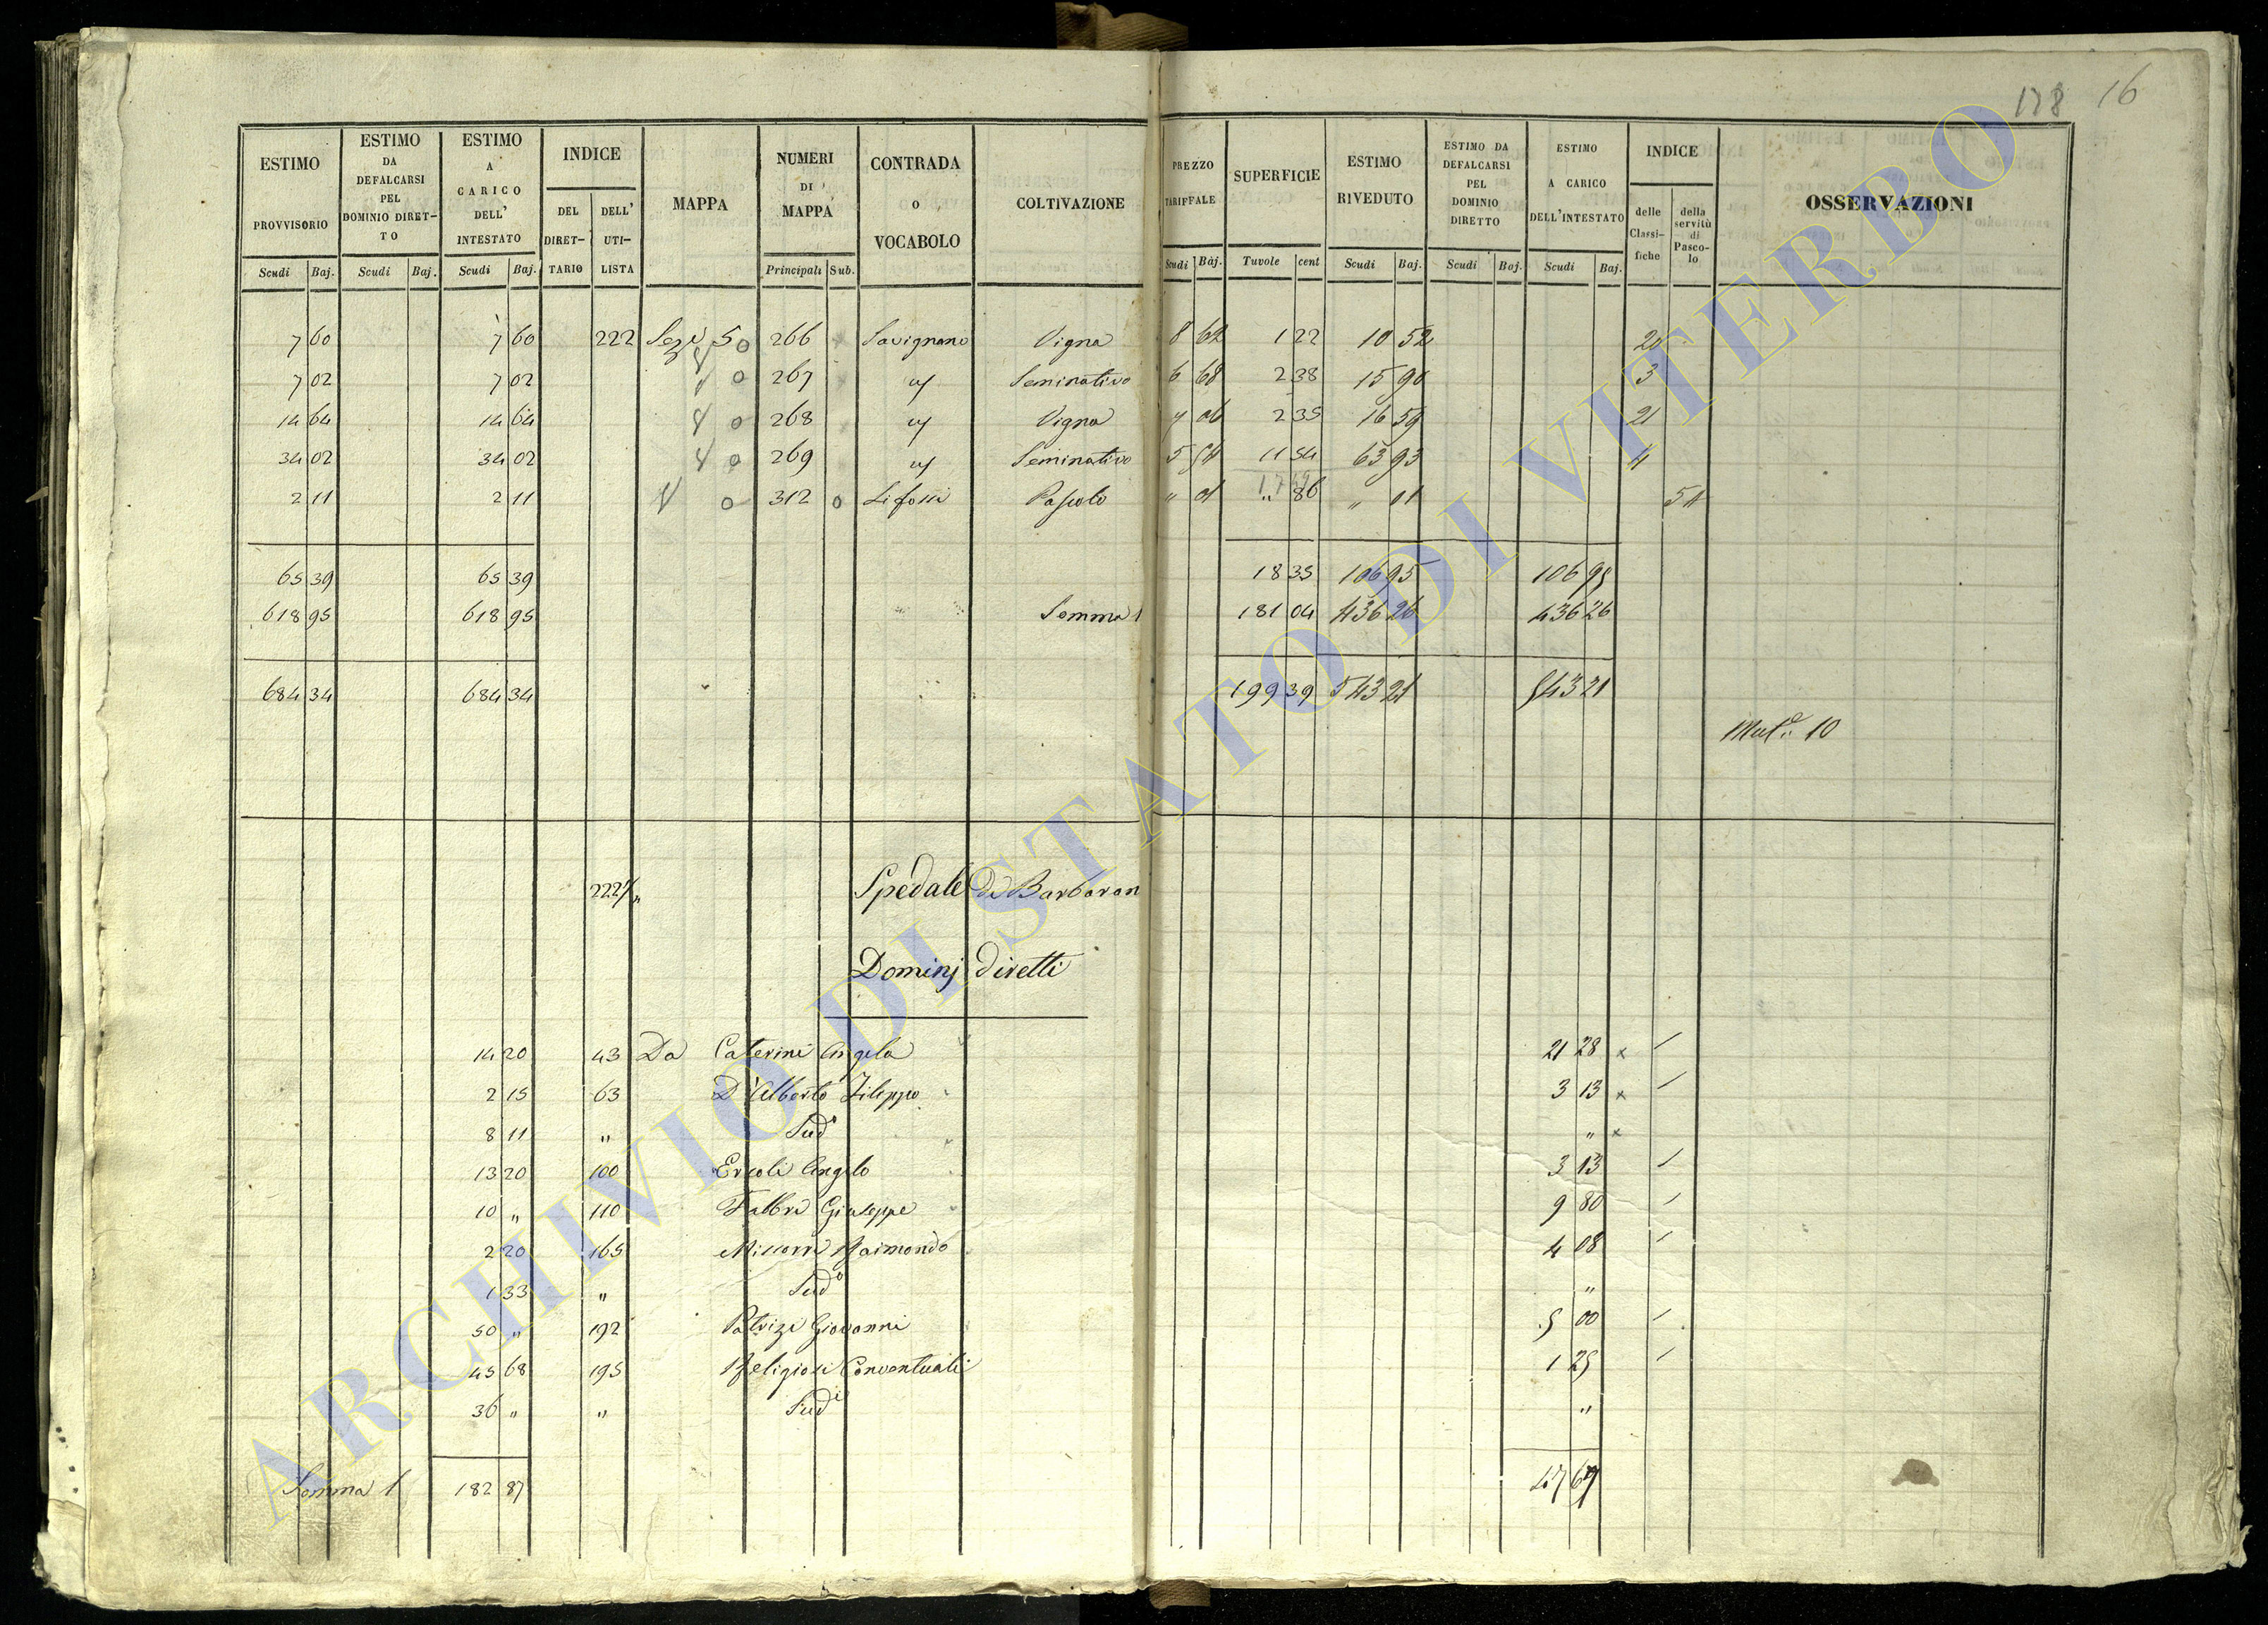 178 16
ESTIMO PROVVISORIO
ESTIMO DA DEFALCARSI PEL DOMINIO DIRETTO
ESTIMO A CARICO DELL' INTESTATO
INDICE
DEL DIRETTARIO
DELL' UTILISTA
MAPPA
NUMERI DI MAPPA
CONTRADA O VOCABOLO
COLTIVAZIONE
PREZZO TARIFFALE
SUPERFICIE
ESTIMO RIVEDUTO
ESTIMO DA DEFALCARSI PEL DOMINIO DIRETTO
ESTIMO A CARICO DELL'INTESTATO
INDICE
delle Classifiche
della servitù di Pascolo
OSSERVAZIONI
Scudi Baj. Scudi Baj. Scudi Baj. Principali Sub. Scudi Baj. Tavole cent Scudi Baj. Scudi Baj. Scudi Baj.
7 60 7 60 222 Sez. 5 0 266 Savignano Vigna 8 62 1 22 10 52 20
7 02 7 02 0 267 Seminativo 6 68 2 38 15 90 3
14 64 14 64 0 268 Vigna 7 06 2 35 16 59 21
34 02 34 02 0 269 Seminativo 5 54 11 54 63 93 4
2 11 2 11 0 312 0 Li fossi Pascolo " 01 " 86 " 01 54
65 39 65 39 18 35 106 95 106 95
618 95 618 95 Somma 1 181 04 436 26 436 26
684 34 684 34 199 39 543 21 543 21
10
222 Spedale di Barbaran
Dominj diretti
14 20 43 Da Caterini Angela 21 28 x
2 15 63 D'Alberto Filippo 3 13 x
8 11 " Sudo " x
13 20 100 Ercoli Angelo 3 13
10 " 110 Fabbri Giuseppe 9 80
2 20 165 Raimondo 4 08
1 33 " Sudo "
50 " 192 Patrizi Giovanni 5 00
45 68 195 Religiosi Conventuali 1 25
36 " " Sudi "
Somma 1 182 87 47 67
ARCHIVIO DI STATO DI VITERBO